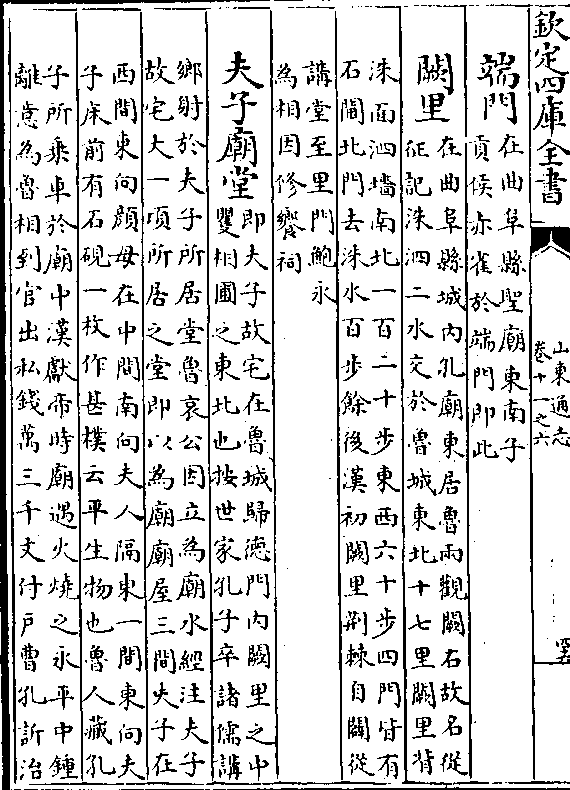 欽定四庫全書
山東通志
卷十一之六
端門
在曲阜縣聖廟東南子
貢侯亦雀於端門即此
闕里
在曲阜縣城內孔廟東居魯兩觀闕右故名從
征記洙泗二水交於魯城東北十七里闕里背
洙面泗墻南北一百二十步東西六十步四門皆有
石閫北門去洙水百步餘後漢初闕里荆棘自闢從
講堂至里門鮑永
為相因修饗祠
夫子廟堂
即夫子故宅在魯城歸德門內闕里之中
矍相圃之東北也按世家孔子卒諸儒講
鄉射於夫子所居堂魯哀公因立為廟水經注夫子
故宅大一項所居之堂即以為廟廟屋三間夫子在
西間東向顔母在中間南向夫人隔東一間東向夫
子床前有石硯一枚作甚樸云平生物也魯人藏孔
子所乘車於廟中漢獻帝時廟遇火燒之永平中鍾
離意為魯相到官出私錢萬三千文付户曹孔訢治